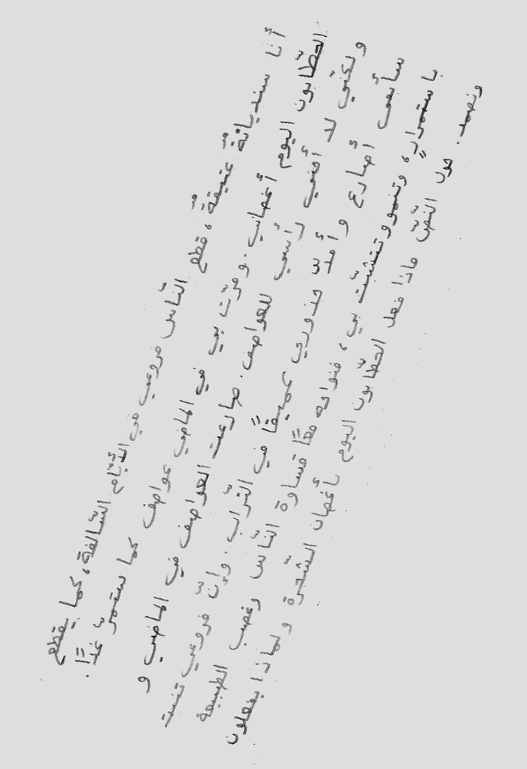 أنا سنديانة عتيقة، قطع الناس فروعي في الأيّام السّالفة، كما يقطع
الحطّابون اليوم أغصاني. ومرّت بي في الماضي عواصف كما ستمرّ غدًا.
ولكنّي لا أحني رأسي للعواصف. صارعت العواصف في الماضي و
سأبقى أصارع وأمدّ جذوري عميقًا في التّراب. وإنّ فروعي تنبت
باستمرارٍ، وتنمو وتتشبّث بي، فنواجه معًا قساوة النّاس وغضب الطبيعة
ونصمد. من النّصّ ماذا فعل الحطّابون اليوم بأغصان الشّجرة ولماذا يفعلون